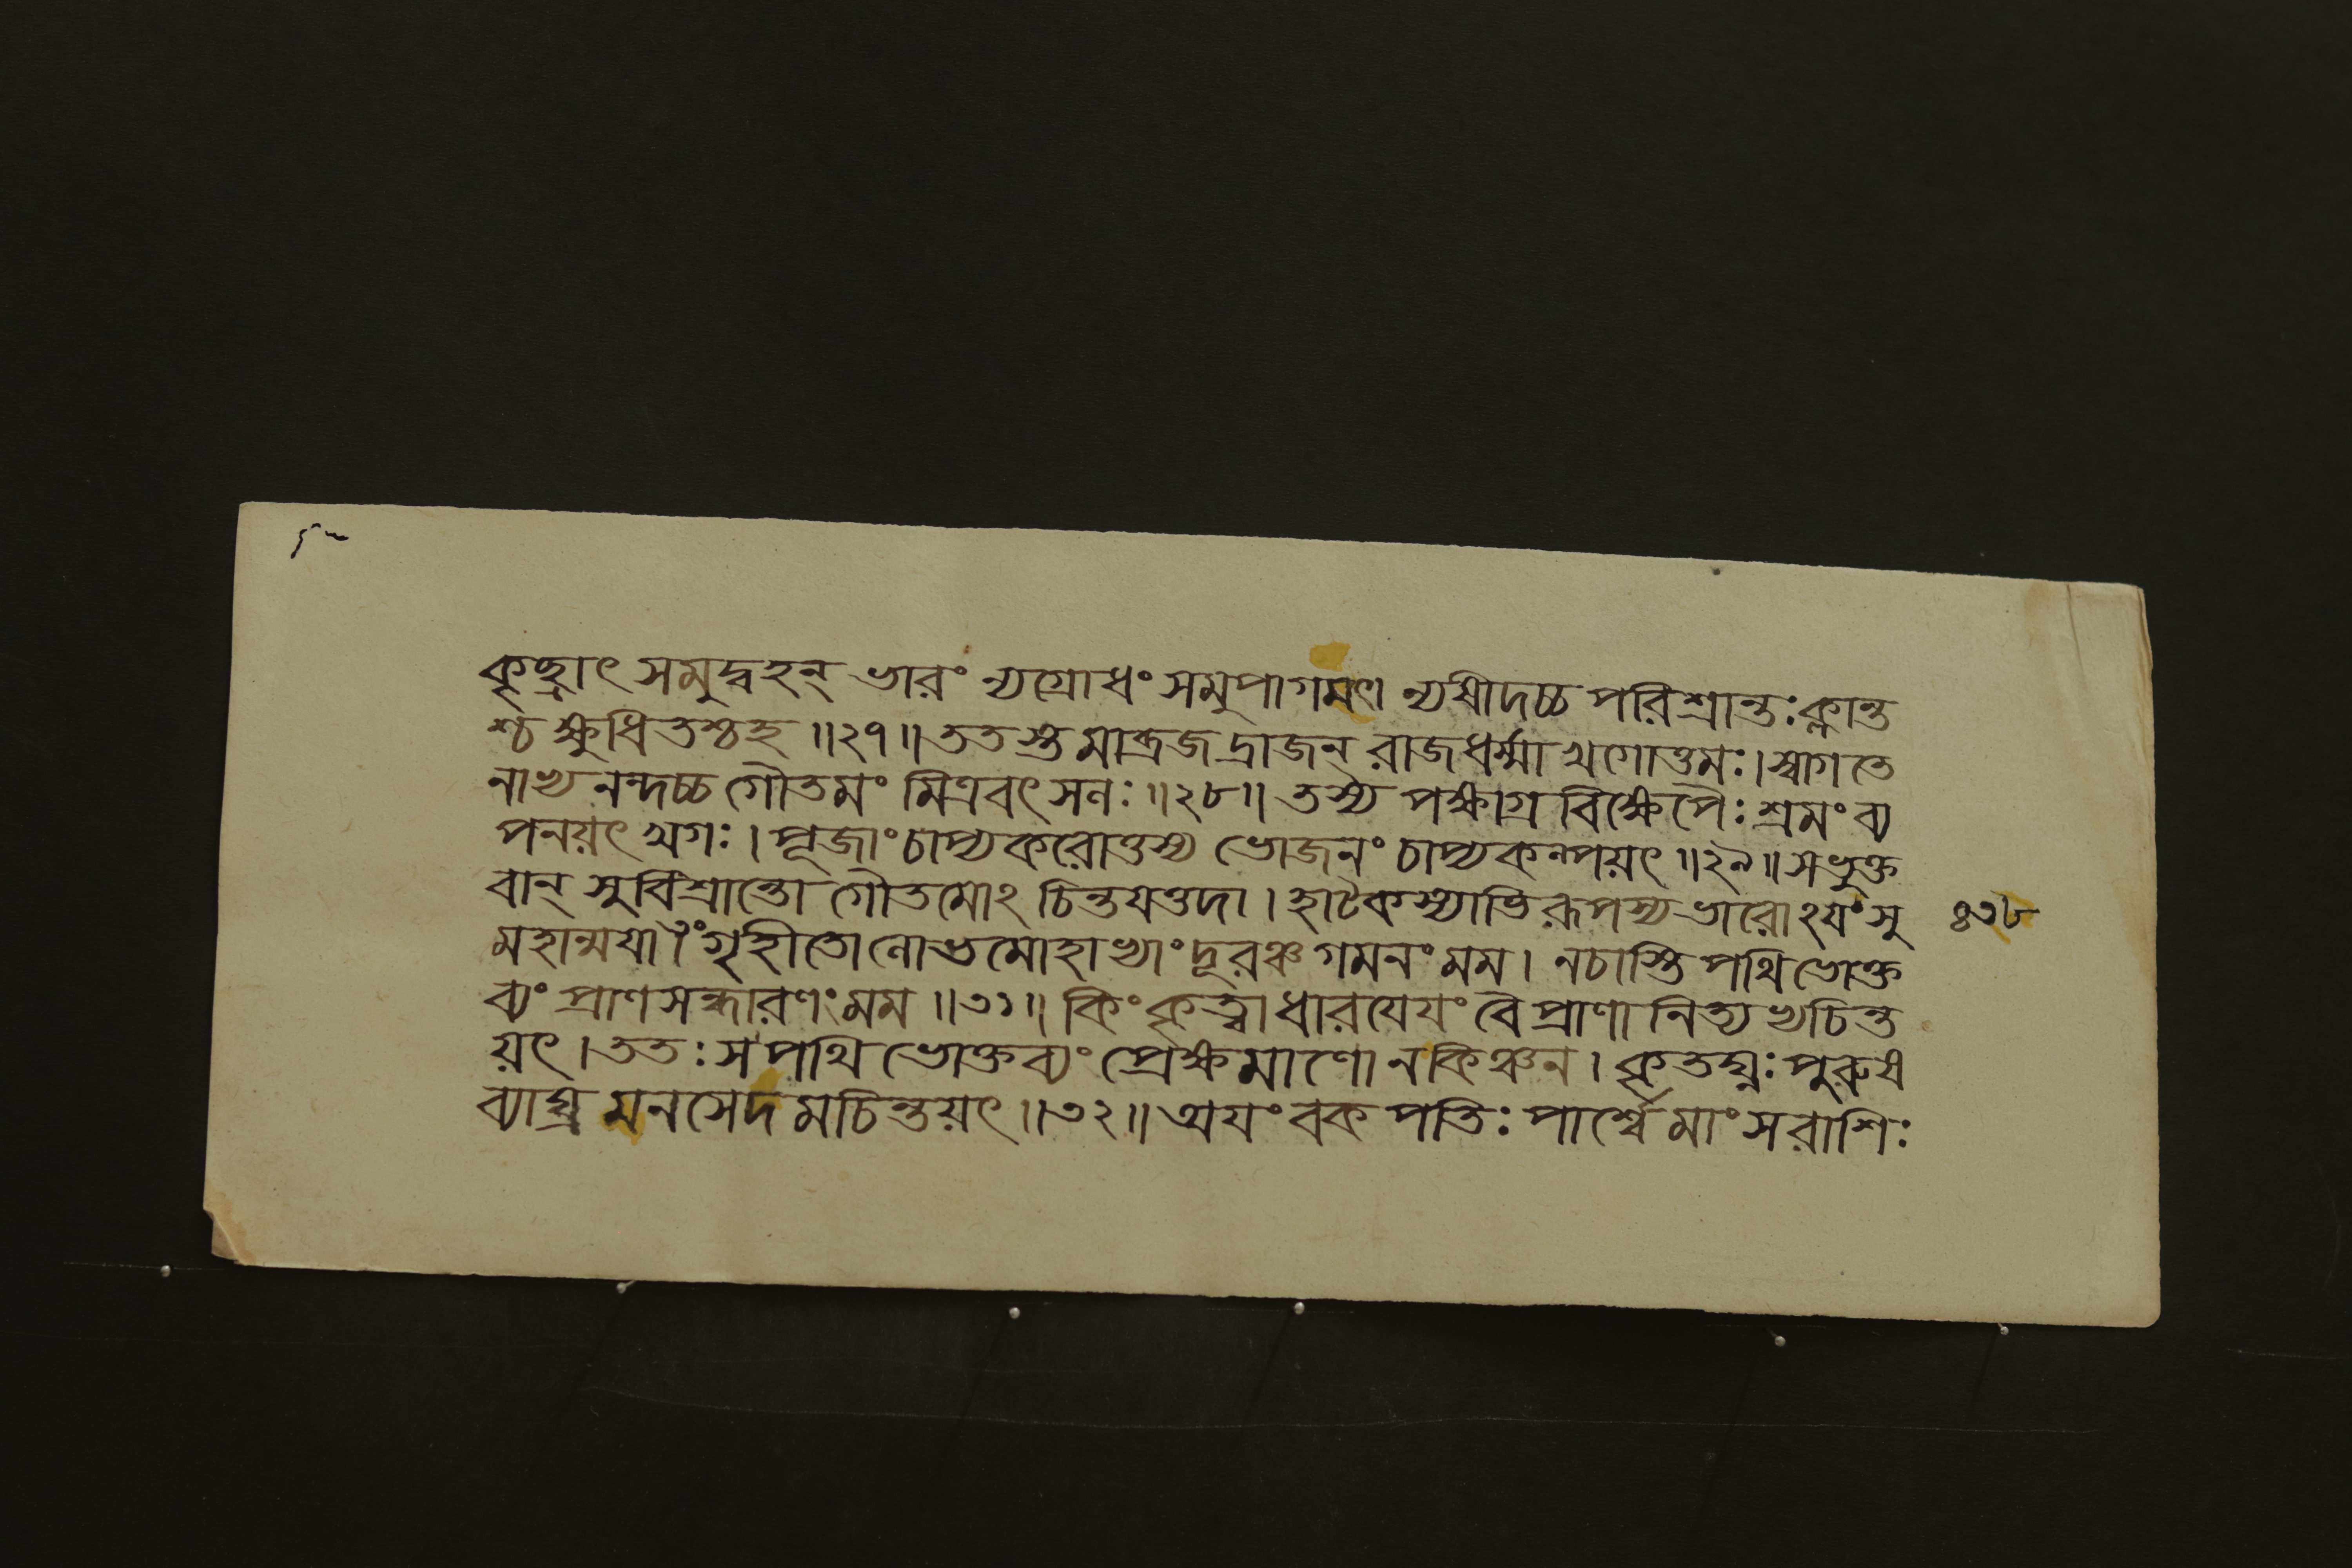 কৃচ্ছ্রাৎ সমুদ্বহন্ ভারং ন্যগ্রোধং সমুপাগমৎ। ন্যষীদচ্চ পরিশ্রান্তঃ ক্লান্ত
শ্চ ক্ষুধিতশ্চহ ॥২৭॥ ততস্তমাব্রজদ্রাজন্ রাজধর্ম্মা খগোত্তমঃ। স্বাগতে
নাভ্যনন্দচ্চ গৌতমং মিত্রবৎসলঃ ॥২৮॥ তস্য পক্ষাগ্রবিক্ষেপৈঃ শ্রমং ব্য
পনয়ৎ খগঃ। পূজাং চাপ্যকরোত্তস্য ভোজনং চাপ্যকল্পয়ৎ ॥২৯॥ সভুক্ত
বান্ সুবিশ্রান্তো গৌতমোঽচিন্তযত্তদা। হাটকস্যাভিরূপস্য ভারোঽযং সু
মহান্ময়া গৃহীতো লোভমোহাভ্যাং দূরঞ্চ গমনং মম। নচাস্তি পথি ভোক্ত
ব্যং প্রাণসন্ধারণং মম ॥৩১॥ কিং কৃত্বা ধারযেযং বৈ প্রাণানিত্যভ্যচিন্ত
য়ৎ। ততঃ স পথি ভোক্তব্যং প্রেক্ষমাণো ন কিঞ্চন। কৃতঘ্নঃ পুরুষ
ব্যাঘ্র মনসেদমচিন্তয়ৎ ॥৩২॥ অযং বকপতিঃ পার্শ্বে মাংসরাশিঃ
৪৩৮